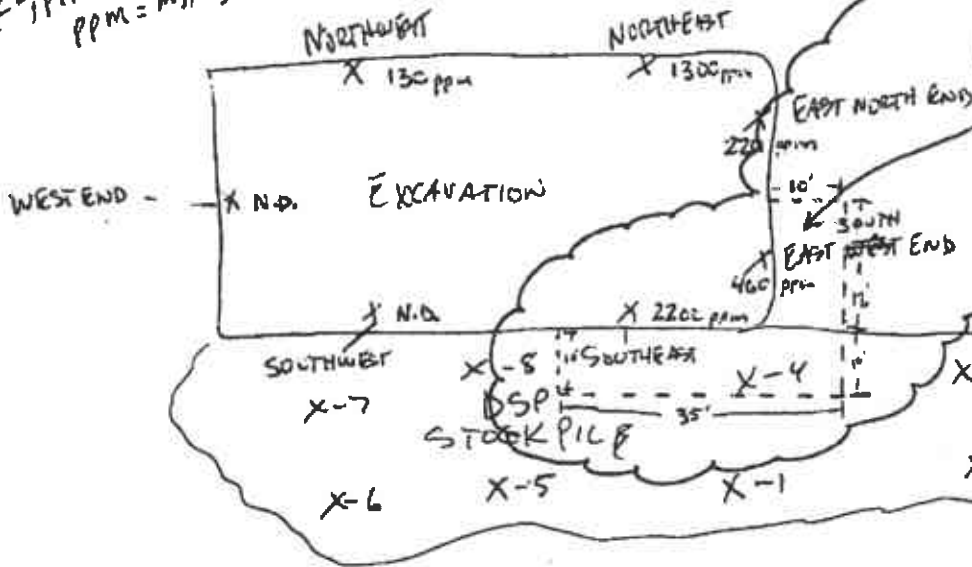 ppm =
NORTHWEST
NORTHEAST
X 130 ppm
X 1300 ppm
EAST NORTH END
220 ppm
WEST END -
X N.D.
EXCAVATION
10'
SOUTH
EAST WEST END
X
460 ppm
12'
X N.D.
X 2200 ppm
SOUTHWEST
X-8
10'
SOUTHEAST
X-4
10'
X
X-7
DSP
35'
STOCKPILE
X-6
X-5
X-1
X